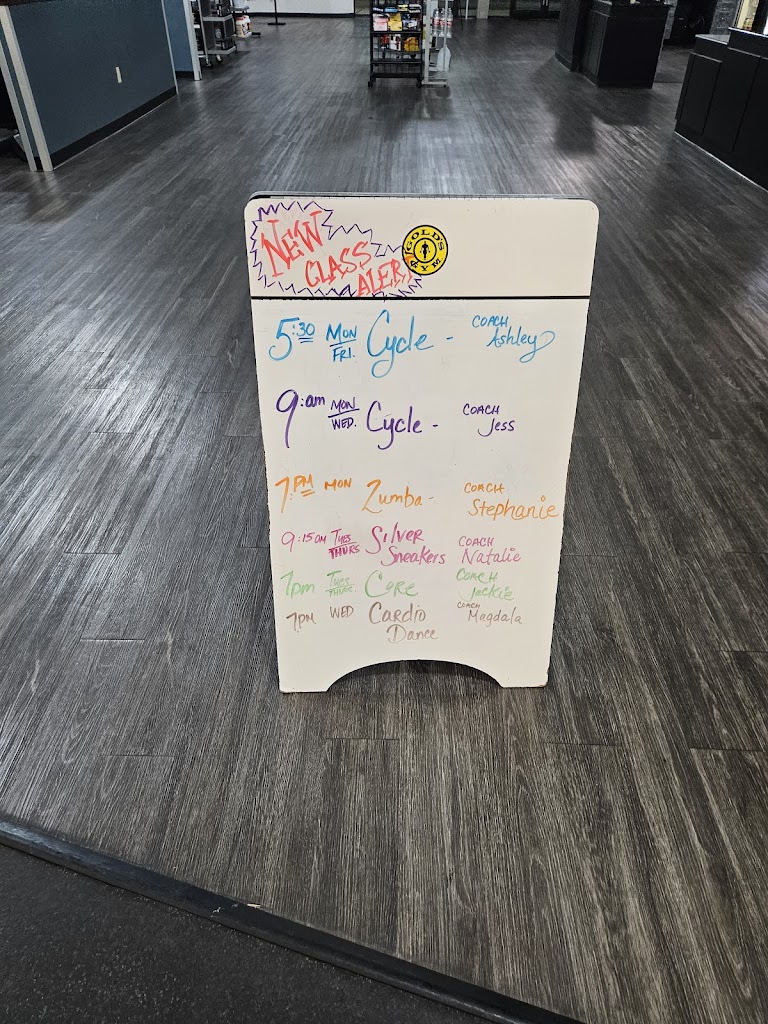 NEW
CLASS
ALERT
GOLD'S GYM
5:30 MON FRI. Cycle - COACH Ashley
9:am MON WED. Cycle - COACH Jess
7:PM MON Zumba - COACH Stephanie
9:15am TUES THURS Silver Sneakers COACH Natalie
7pm TUES THURS. CORE COACH Jackie
7PM WED Cardio Dance COACH Magdala